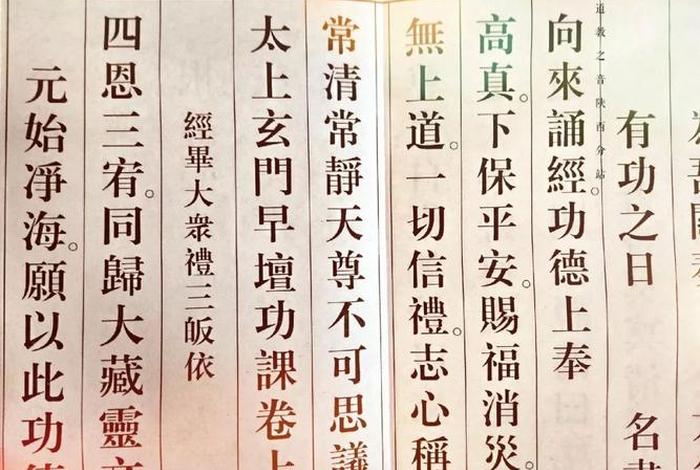 有功之日 名
道教之音陕西分站
向來誦經。功德上奉
高真。下保平安。賜福消災。
無上道。一切信禮。志心稱
常清常靜天尊不可思議
太上玄門早壇功課卷上
經畢大衆禮三皈依
四恩三宥。同歸大藏靈
元始凈海。願以此功